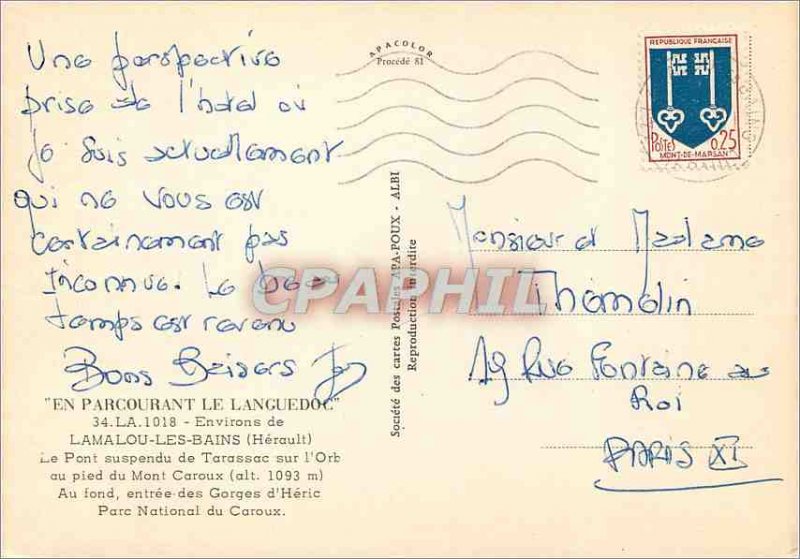 Une perspective
prise de l'hotel où
je suis actuellement
qui ne vous est
certainement pas
inconnue. Le beau
temps est revenu
Bons Baisers
"EN PARCOURANT LE LANGUEDOC"
34.LA.1018 - Environs de
LAMALOU-LES-BAINS (Hérault)
Le Pont suspendu de Tarassac sur l'Orb
au pied du Mont Caroux (alt. 1093 m)
Au fond, entrée des Gorges d'Héric
Parc National du Caroux.
APACOLOR
Procédé 81
Société des cartes Postales APA-POUX - ALBI
Reproduction interdite
CPAPHIL
REPUBLIQUE FRANÇAISE
POSTES 0,25
MONT-DE-MARSAN
Monsieur et Madame
Thomelin
19 Rue Fontaine au
Roi
PARIS XI